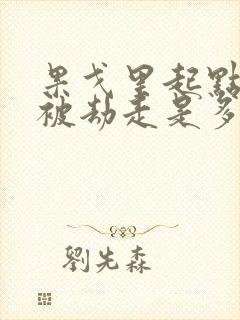 果戈里起點
被劫走是多
劉先森